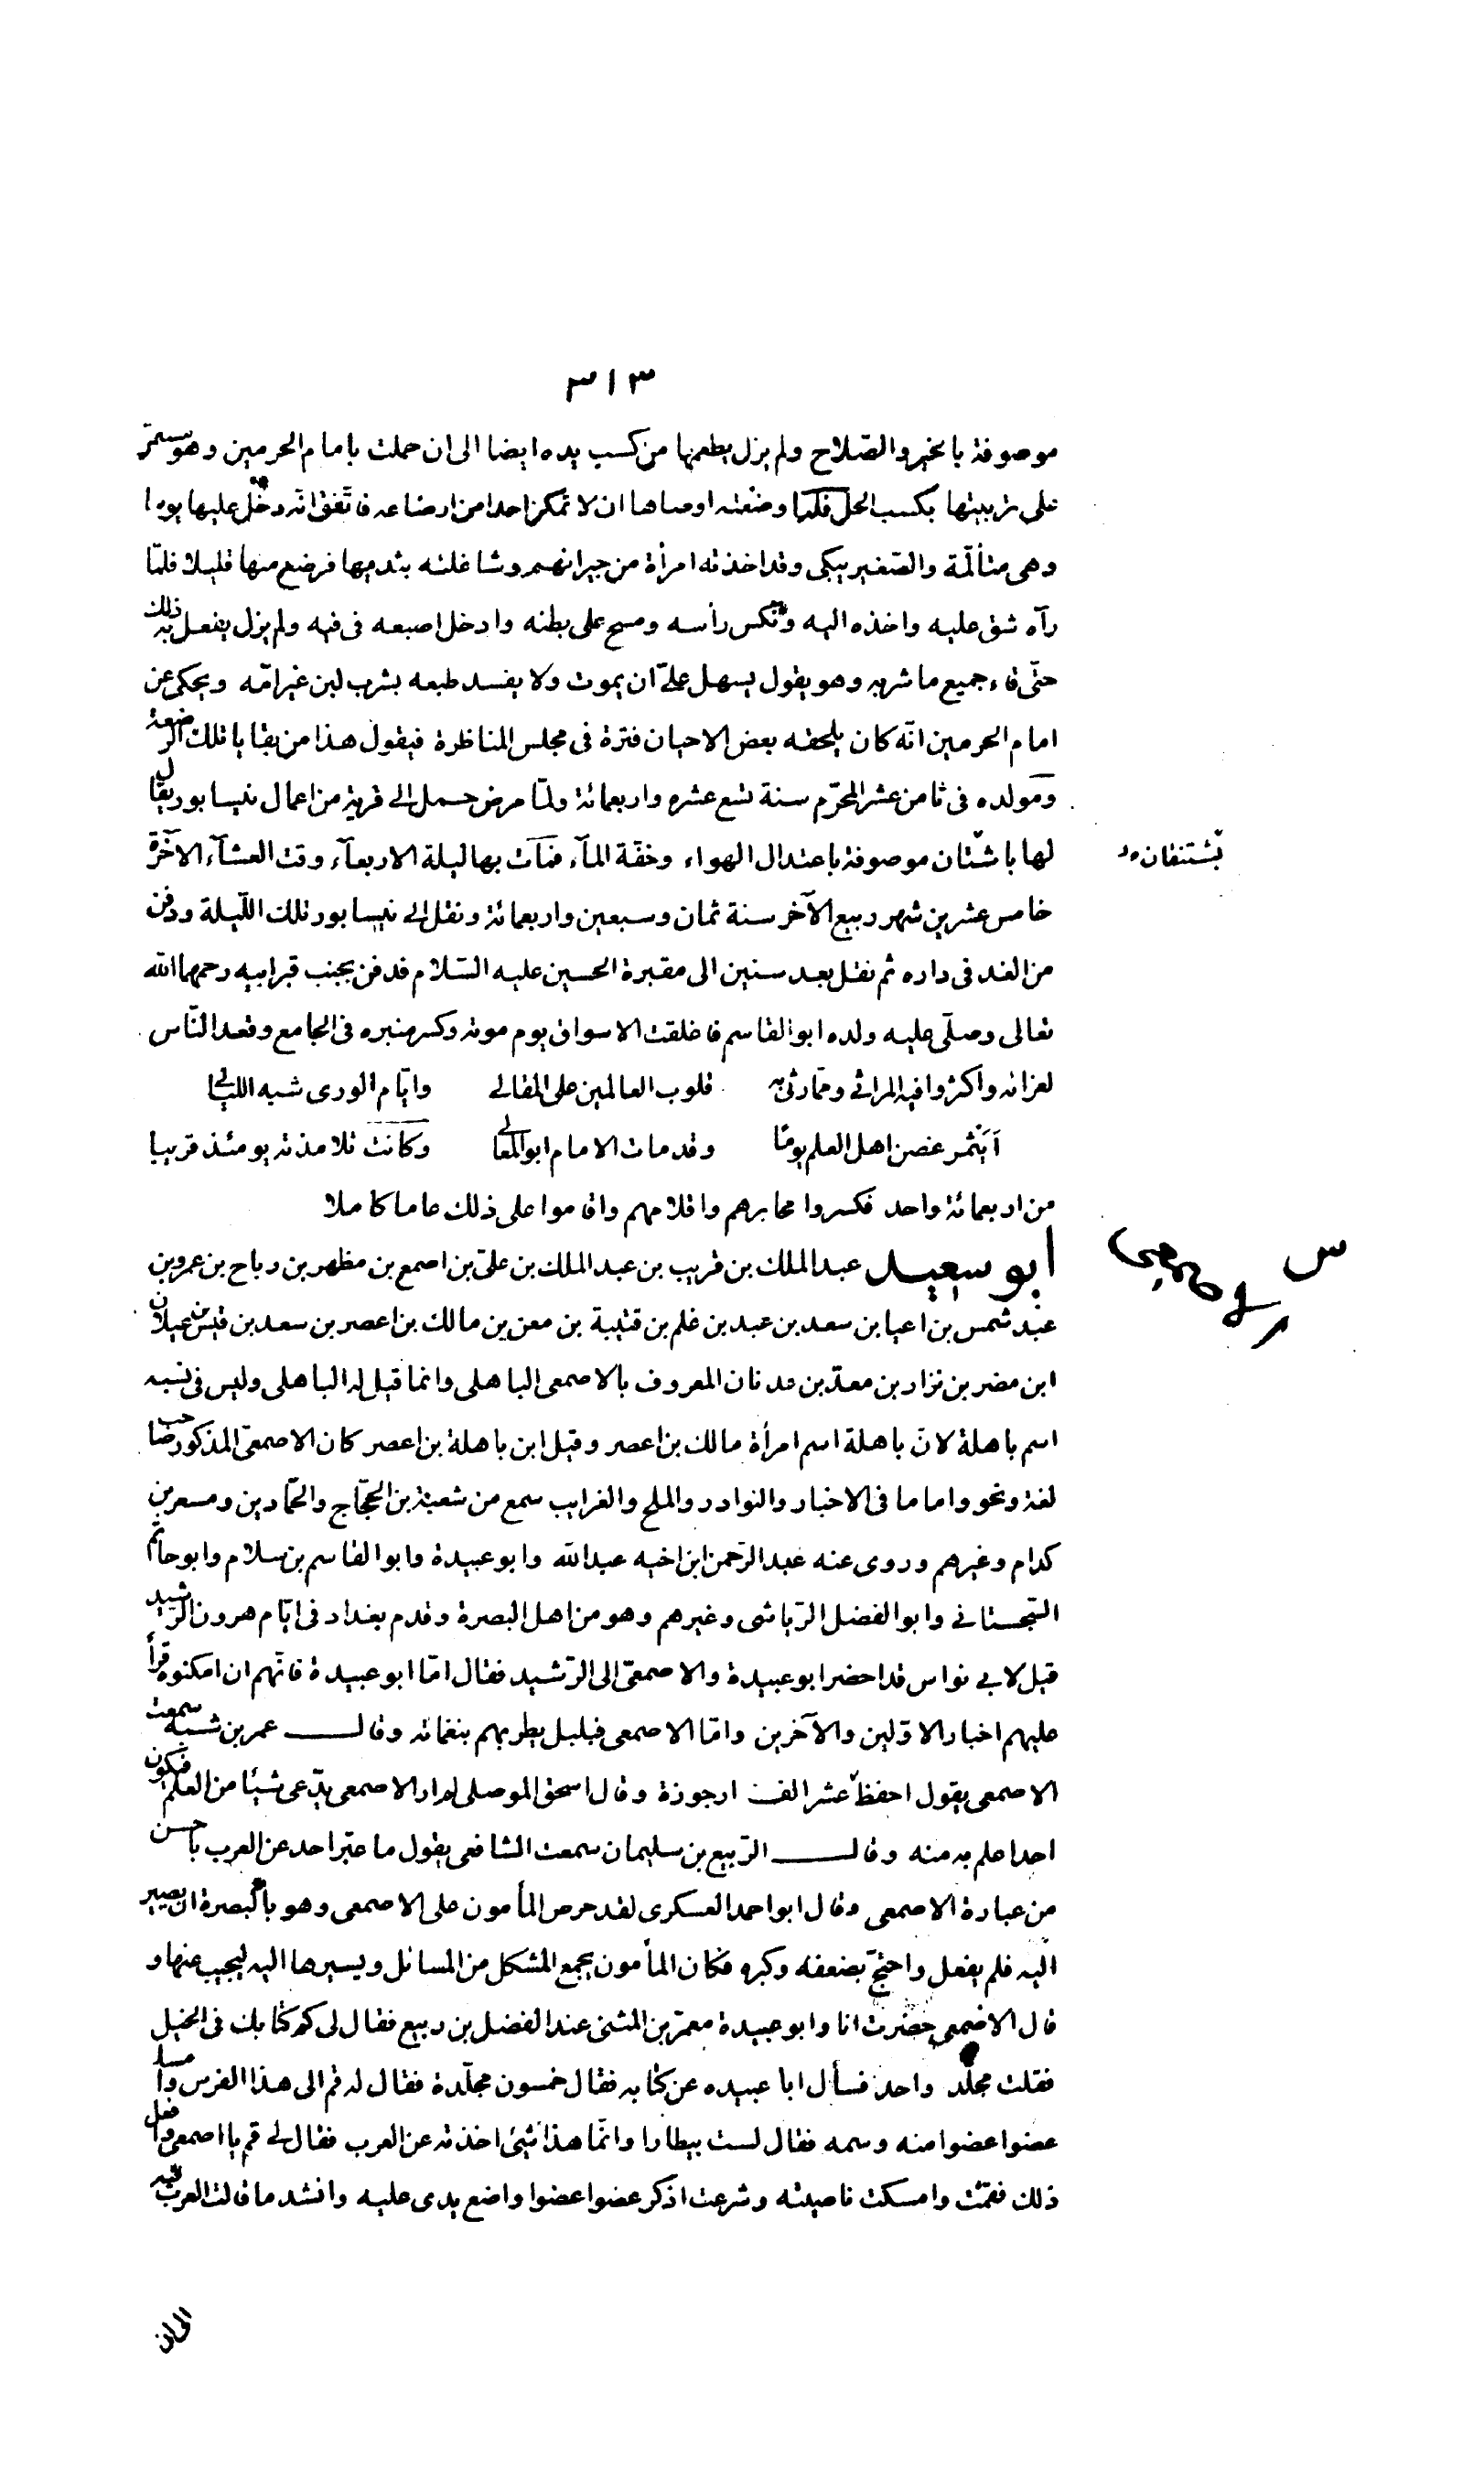 ٣١٣
موصوفة بالخير والصّلاح ولم يزل يطعمها من كسب يده ايضا الى ان حملت بامام الحرمين وهو مستمرّ
على تربيتها بكسب الحلّ فلمّا وضعته اوصاها ان لا تمكن احدا من ارضاعه فاتّفق انّه دخل عليها يوما
وهى متألّمة والصّغير يبكى وقد اخذته امرأة من جيرانهم وشاغلته بثديها فرضع منها قليلا فلمّا
رآه شق عليه واخذه اليه ونكس رأسه ومسح على بطنه وادخل اصبعه فى فيه ولم يزل يفعل به ذلك
حتّى قاء جميع ما شربه وهو يقول يسهل علىّ ان يموت ولا يفسد طبعه بشرب لبن غير امّه ويحكى عن
امام الحرمين انّه كان يلحقه بعض الاحيان فترة فى مجلس المناظرة فيقول هذا من بقايا تلك الرّضعة
ومولده فى ثامن عشر المحرّم سنة تسع عشره واربعمائة ولمّا مرض حمل الى قرية من اعمال نيسابور يقال
لها باشتان موصوفة باعتدال الهواء وخفّة المآء فمات بها ليلة الاربعآء وقت العشآء الآخرة
بشتنقان
خامس عشرين شهر ربيع الآخر سنة ثمان وسبعين واربعمائة ونقل الى نيسابور تلك اللّيلة ودفن
من الغد فى داره ثم نقل بعد سنين الى مقبرة الحسين عليه السّلام فدفن بجنب قبر ابيه رحمهما الله
تعالى وصلّى عليه ولده ابو القاسم فاغلقت الاسواق يوم موته وكسر منبره فى الجامع وقعد النّاس
لعزائه واكثروا فيه المراثى وممّا رثى به قلوب العالمين على المقالى وايّام الورى شبه الليالى
اَيثمر غصن اهل العلم يومًا وقد مات الامام ابو المعالى وكانت تلامذته يومئذ قريبا
من اربعمائة واحد فكسروا محابرهم واقلامهم واقاموا على ذلك عاما كاملا
س الاصمعى
أبو سعيد عبد الملك بن قريب بن عبد الملك بن علىّ بن اصمع بن مظهر بن رباح بن عمرو بن
عبد شمس بن اعيا بن سعد بن عبد بن غلم بن قتيبة بن معن بن مالك بن اعصر بن سعد بن قيس بن عيلان
ابن مضر بن نزار بن معدّ بن عدنان المعروف بالاصمعى الباهلى وانما قيل له الباهلى وليس فى نسبه
اسم باهلة لانّ باهلة اسم امرأة مالك بن اعصر وقيل ابن باهلة بن اعصر كان الاصمعىّ المذكور صاحب
لغة ونحو واماما فى الاخبار والنوادر والملح والغرايب سمع من شعبة بن الحجّاج والحمّادين ومسعر بن
كدام وغيرهم وروى عنه عبد الرّحمن ابن اخيه عبد الله وابو عبيدة وابو القاسم بن سلام وابو حاتم
السّجستانى وابو الفضل الرّياشى وغيرهم وهو من اهل البصرة وقدم بغداد فى ايّام هرون الرّشيد
قيل لابى نواس قد احضر ابو عبيدة والاصمعىّ الى الرّشيد فقال امّا ابو عبيدة فانّهم ان امكنوه قرأ
عليهم اخبار الاوّلين والآخرين وامّا الاصمعى فبلبل يطربهم بنغماته وقال عمر بن شبة سمعت
الاصمعى يقول احفظ عشر الف ارجوزة وقال اسحق الموصلى لم ار الاصمعى يدّعى شيئا من العلم فيكون
احدا علم به منه وقال الرّبيع بن سليمان سمعت الشافعى يقول ما عبّر احد عن العرب باحسن
من عبارة الاصمعى وقال ابو احمد العسكرى لقد حرص المأمون على الاصمعى وهو بالبصرة ان يصير
اليه فلم يفعل واحتجّ بضعفه وكبره فكان المأمون يجمع المشكل من المسائل ويسيرها اليه ليجيب عنها و
قال الاصمعى حضرت انا وابو عبيدة معمر بن المثنى عند الفضل بن ربيع فقال لى كم كتابك فى الخيل
فقلت مجلّد واحد فسأل ابا عبيده عن كتابه فقال خمسون مجلّدة فقال له قم الى هذا الفرس وامسك
عضوا عضوا منه وسمه فقال لست بيطارا وانّما هذا شئ اخذته عن العرب فقال لى قم يا اصمعى وافعل
ذلك فقمت وامسكت ناصيته وشرعت اذكر عضوا عضوا واضع يدى عليه وانشد ما قالت العرب فيه
الى ان